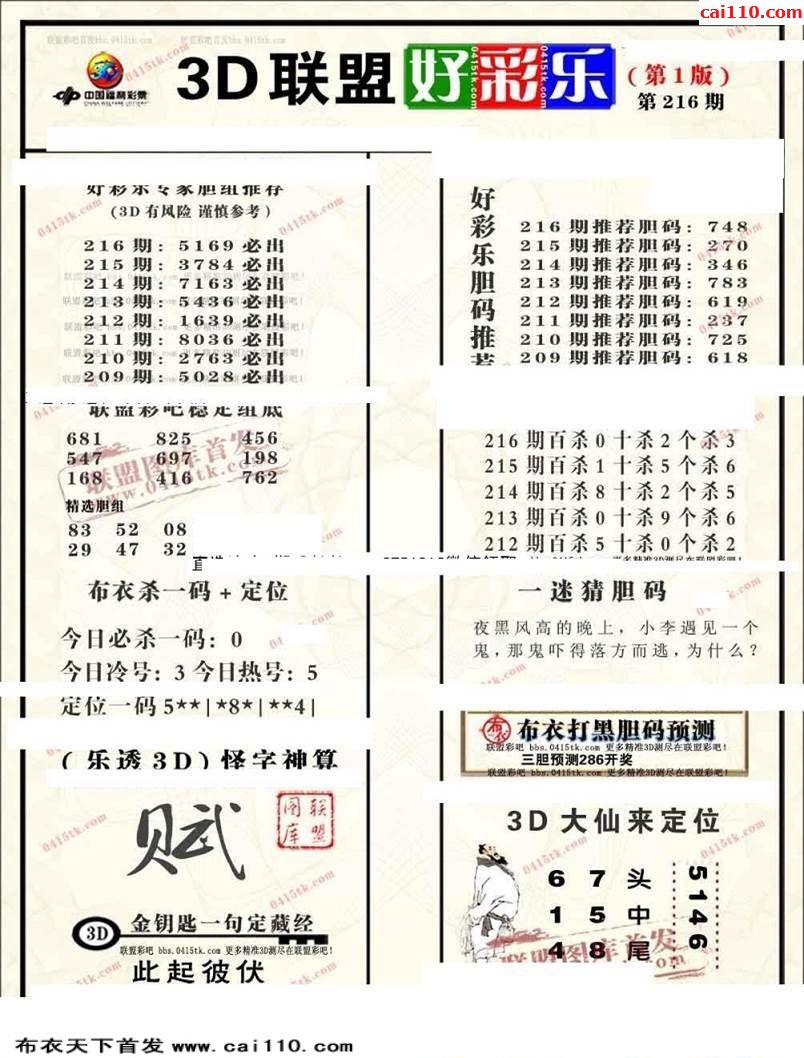 cai110.com
联盟彩吧首发bbs.0415tk.com 联盟彩吧首发bbs.0415tk.com
中国福利彩票
CHINA WELFARE LOTTERY
3D联盟好彩乐
(第1版)
第216期
好彩乐专家胆组推荐
(3D有风险 谨慎参考)
216期: 5169必出
215期: 3784必出
214期: 7163必出
213期: 5436必出
212期: 1639必出
211期: 8036必出
210期: 2763必出
209期: 5028必出
好彩乐胆码推荐
216期推荐胆码: 748
215期推荐胆码: 270
214期推荐胆码: 346
213期推荐胆码: 783
212期推荐胆码: 619
211期推荐胆码: 237
210期推荐胆码: 725
209期推荐胆码: 618
联盟彩吧稳定组底
681 825 456
547 697 198
168 416 762
联盟图库首发
www.0415tk.com
精选胆组
83 52 08
29 47 32
216期百杀0十杀2个杀3
215期百杀1十杀5个杀6
214期百杀8十杀2个杀5
213期百杀0十杀9个杀6
212期百杀5十杀0个杀2
布衣杀一码+定位
今日必杀一码: 0
今日冷号: 3 今日热号: 5
定位一码5**|*8*|**4|
一迷猜胆码
夜黑风高的晚上，小李遇见一个
鬼，那鬼吓得落方而逃，为什么？
布衣打黑胆码预测
联盟彩吧 bbs.0415tk.com 更多精准3D测尽在联盟彩吧!
三胆预测286开奖
联盟彩吧 bbs.0415tk.com 更多精准3D测尽在联盟彩吧!
(乐透3D)怪字神算
联盟图库
3D 金钥匙一句定藏经
联盟彩吧 bbs.0415tk.com 更多精准3D测尽在联盟彩吧!
此起彼伏
3D大仙来定位
6 7 头
1 5 中
4 8 尾
5146
联盟图库首发
布衣天下首发 www.cai110.com